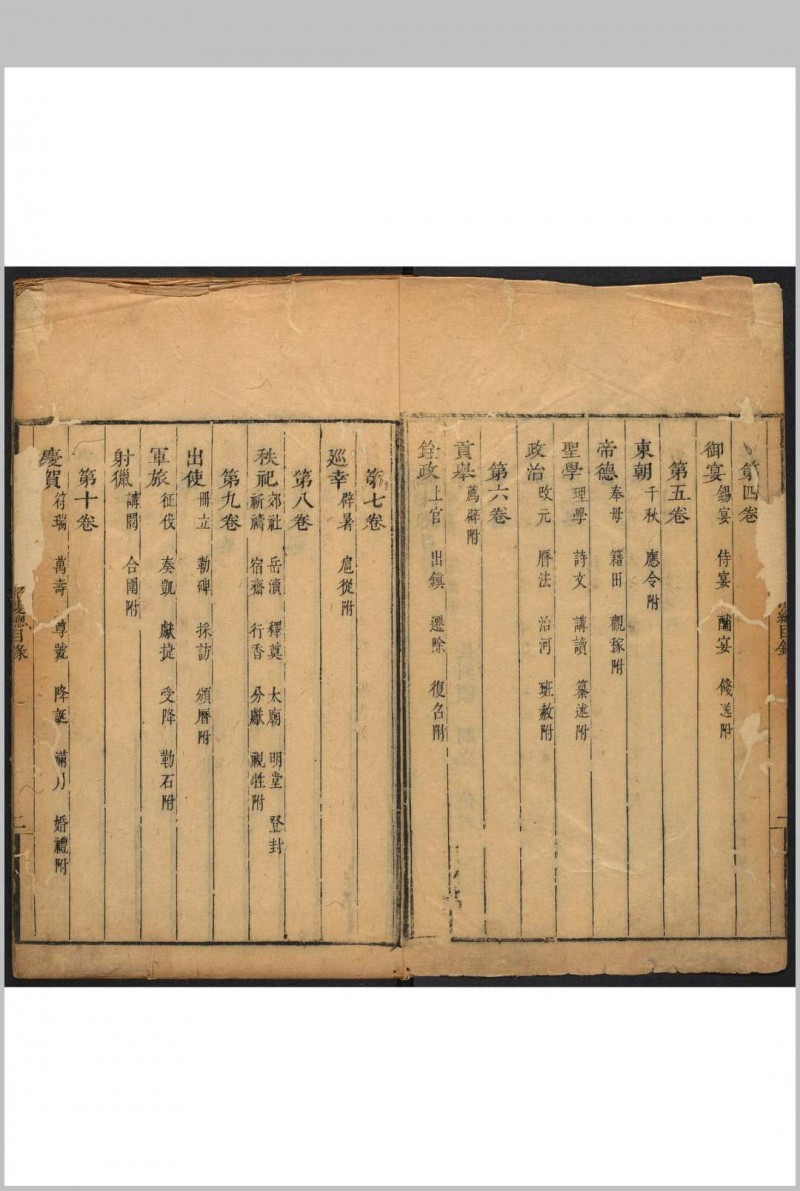 第四卷
御宴 錫宴 侍宴 酺宴 餞送附
第五卷
東朝 千秋 應令附
帝德 奉母 籍田 觀稼附
聖學 理學 詩文 講讀 纂述附
政治 改元 曆法 治河 班赦附
第六卷
貢舉 薦辟附
銓政 上官 出鎮 遷除 復召附
第七卷
巡幸 辟暑 扈從附
第八卷
秩祀 郊社 岳瀆 釋奠 太廟 明堂 登封
祈禱 宿齋 行香 分獻 視牲附
第九卷
出使 冊立 勒碑 採訪 頒曆附
軍旅 征伐 奏凱 獻捷 受降 勒石附
射獵 講閱 合圍附
第十卷
慶賀 符瑞 萬壽 尊號 降誕 滿月 婚禮附
總目錄
二